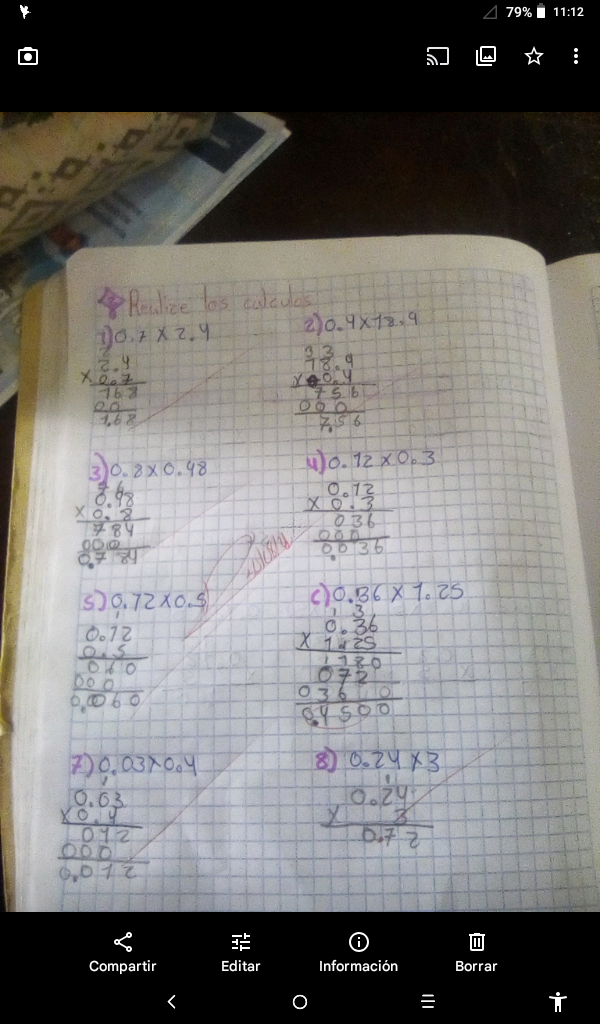 79% 11:12
Realize los calculos
1) 0.7 X 2.4
2) 0.4 X 18.9
2
2.4
X 0.7
168
00
1.68
3 3
18.9
X 0.4
756
000
7.56
3) 0.8 X 0.48
4) 0.12 X 0.3
X 0.8
784
000
0.784
0.12
X 0.3
036
000
0.036
5) 0.12 X 0.5
6) 0.36 X 1.25
1
0.12
0.5
060
000
0.060
1 3
0.36
X 1.25
1180
072
036
0.4500
7) 0.03 X 0.4
8) 0.24 X 3
1
0.03
X 0.4
012
000
0.012
1
0.24
X 3
0.72
Compartir
Editar
Información
Borrar